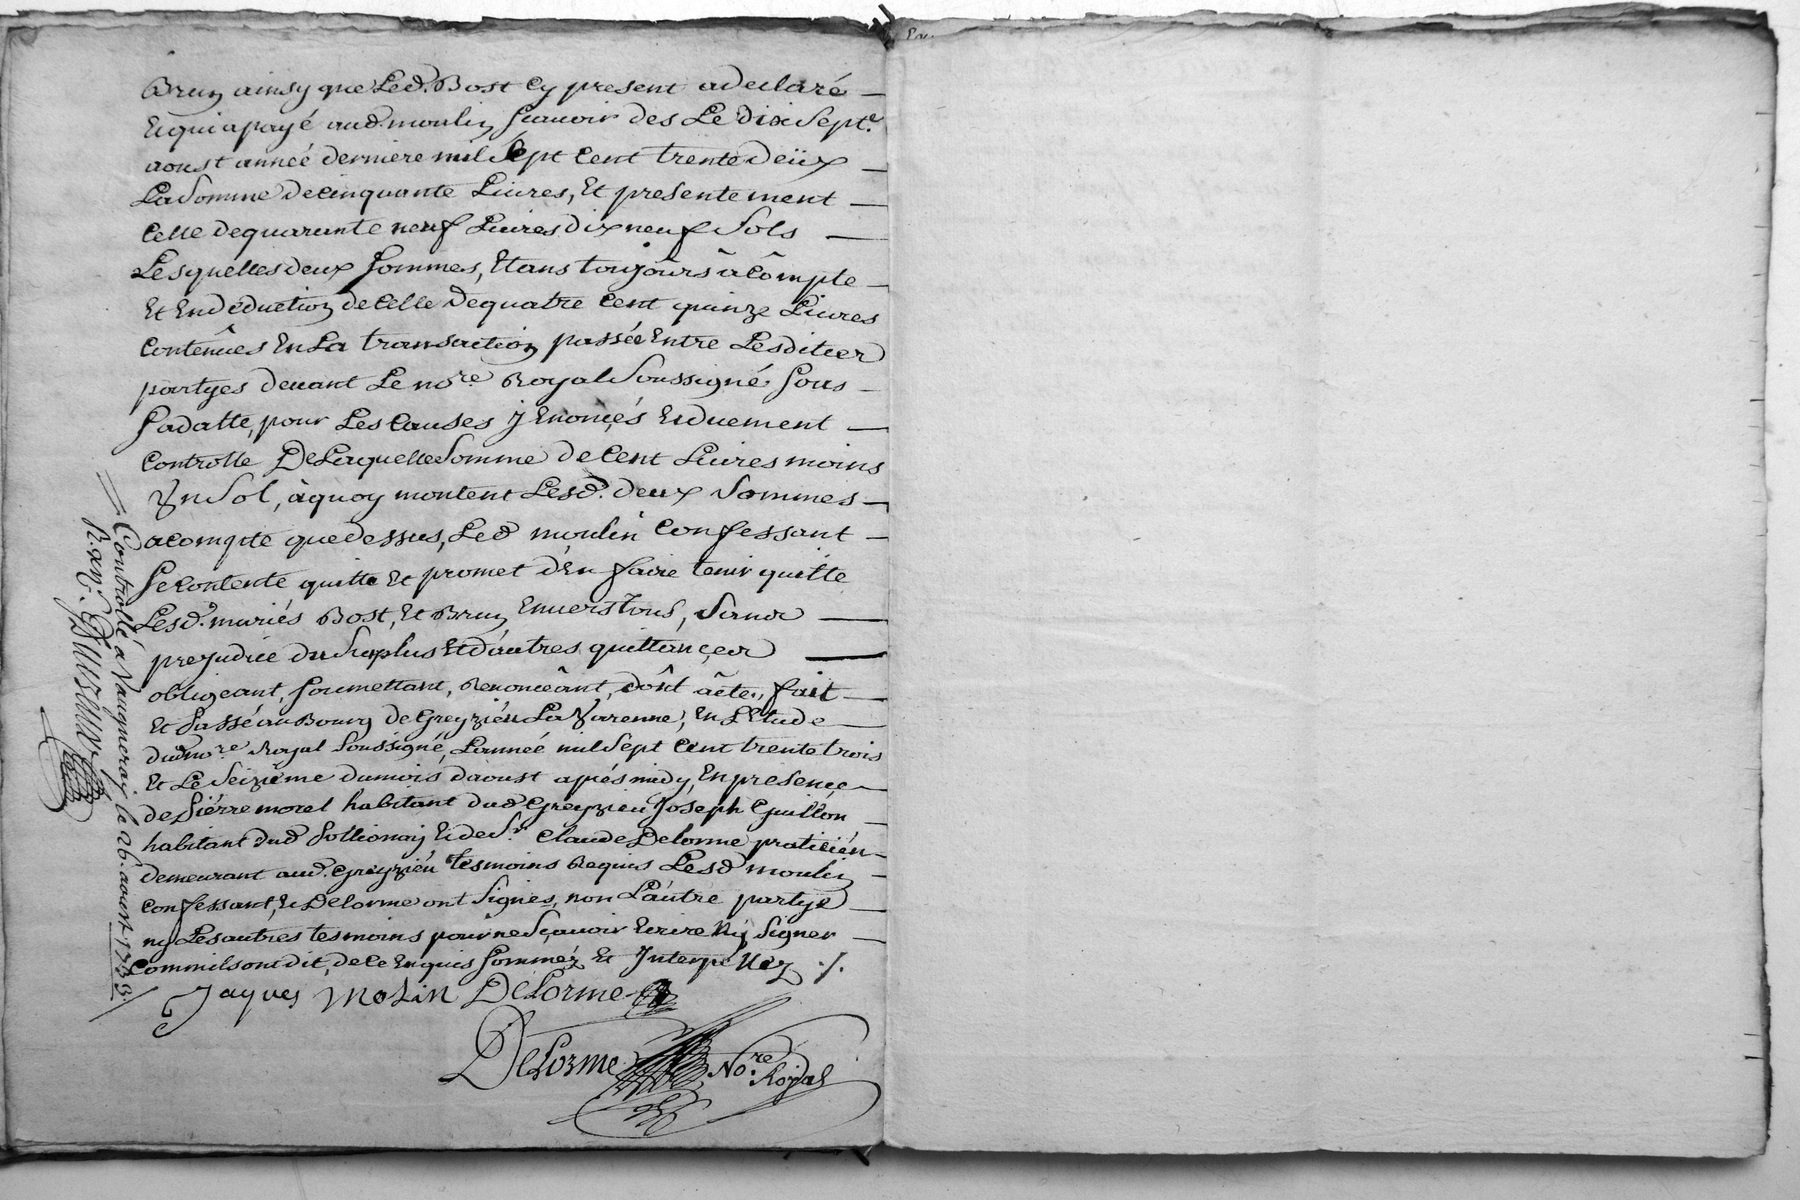 Brun ainsy que Led. Bost Cy present a declaré
Et qui a payé aud. moulin Scavoir des Le dix Sept.e
aoust année derniere mil Sept Cent trente deüx
La Somme de Cinquante Livres, Et presentement
Celle de quarante neuf Livres dix neuf Sols
Lesquelles deux Sommes, Etans toujôurs â Cômpte
Et En déduction de Celle de quatre Cent quinze Livres
Contenûes En La transaction passée Entre Lesdites
partyes devant Le no.re Royal Soussigné Sous
Sa datte, pour Les Causes y Enoncés Et duement
Controlle De Laquelle Somme de Cent Livres moins
Vn Sol, à quoy montent Lesd. deux Sommes
a compte que dessus, Led moulin Confessant
Se Contente quitte Et promet d'En faire tenir quitte
Lesd. mariés Bost, Et Brun Envers tous, Sans
prejudice du Surplus Et d'autres quittances
obligeant, Soumettant, Renonceânt, dônt âcte, fait
Et Passé au Bourg de Greyzieu La Varenne, En L'Etude
dud no.re Royal Soussigné, L'année mil Sept Cent trente trois
Et Le Seizieme du mois d'aoust aprés midy, En presence
de Piérre morel habitant dud Greyzieu Joseph Guillon
habitant dud Et de S.r Claude Delorme praticién
demeurant aud. Greyzieu tesmoins Requis Lesd moulin
Confessant, Et Delorme ont Signés, non L'autre partye
ny Les autres tesmoins pour ne Sçavoir Ecrire Ny Signer
Comm'ils ont dit, de Ce Enquis Sommez Et Interpellez ./.
Jaques Molin Delorme
Delorme No.re Royal
Controllé à Vaugneray le 26. aoust 1733.
R. xij s.